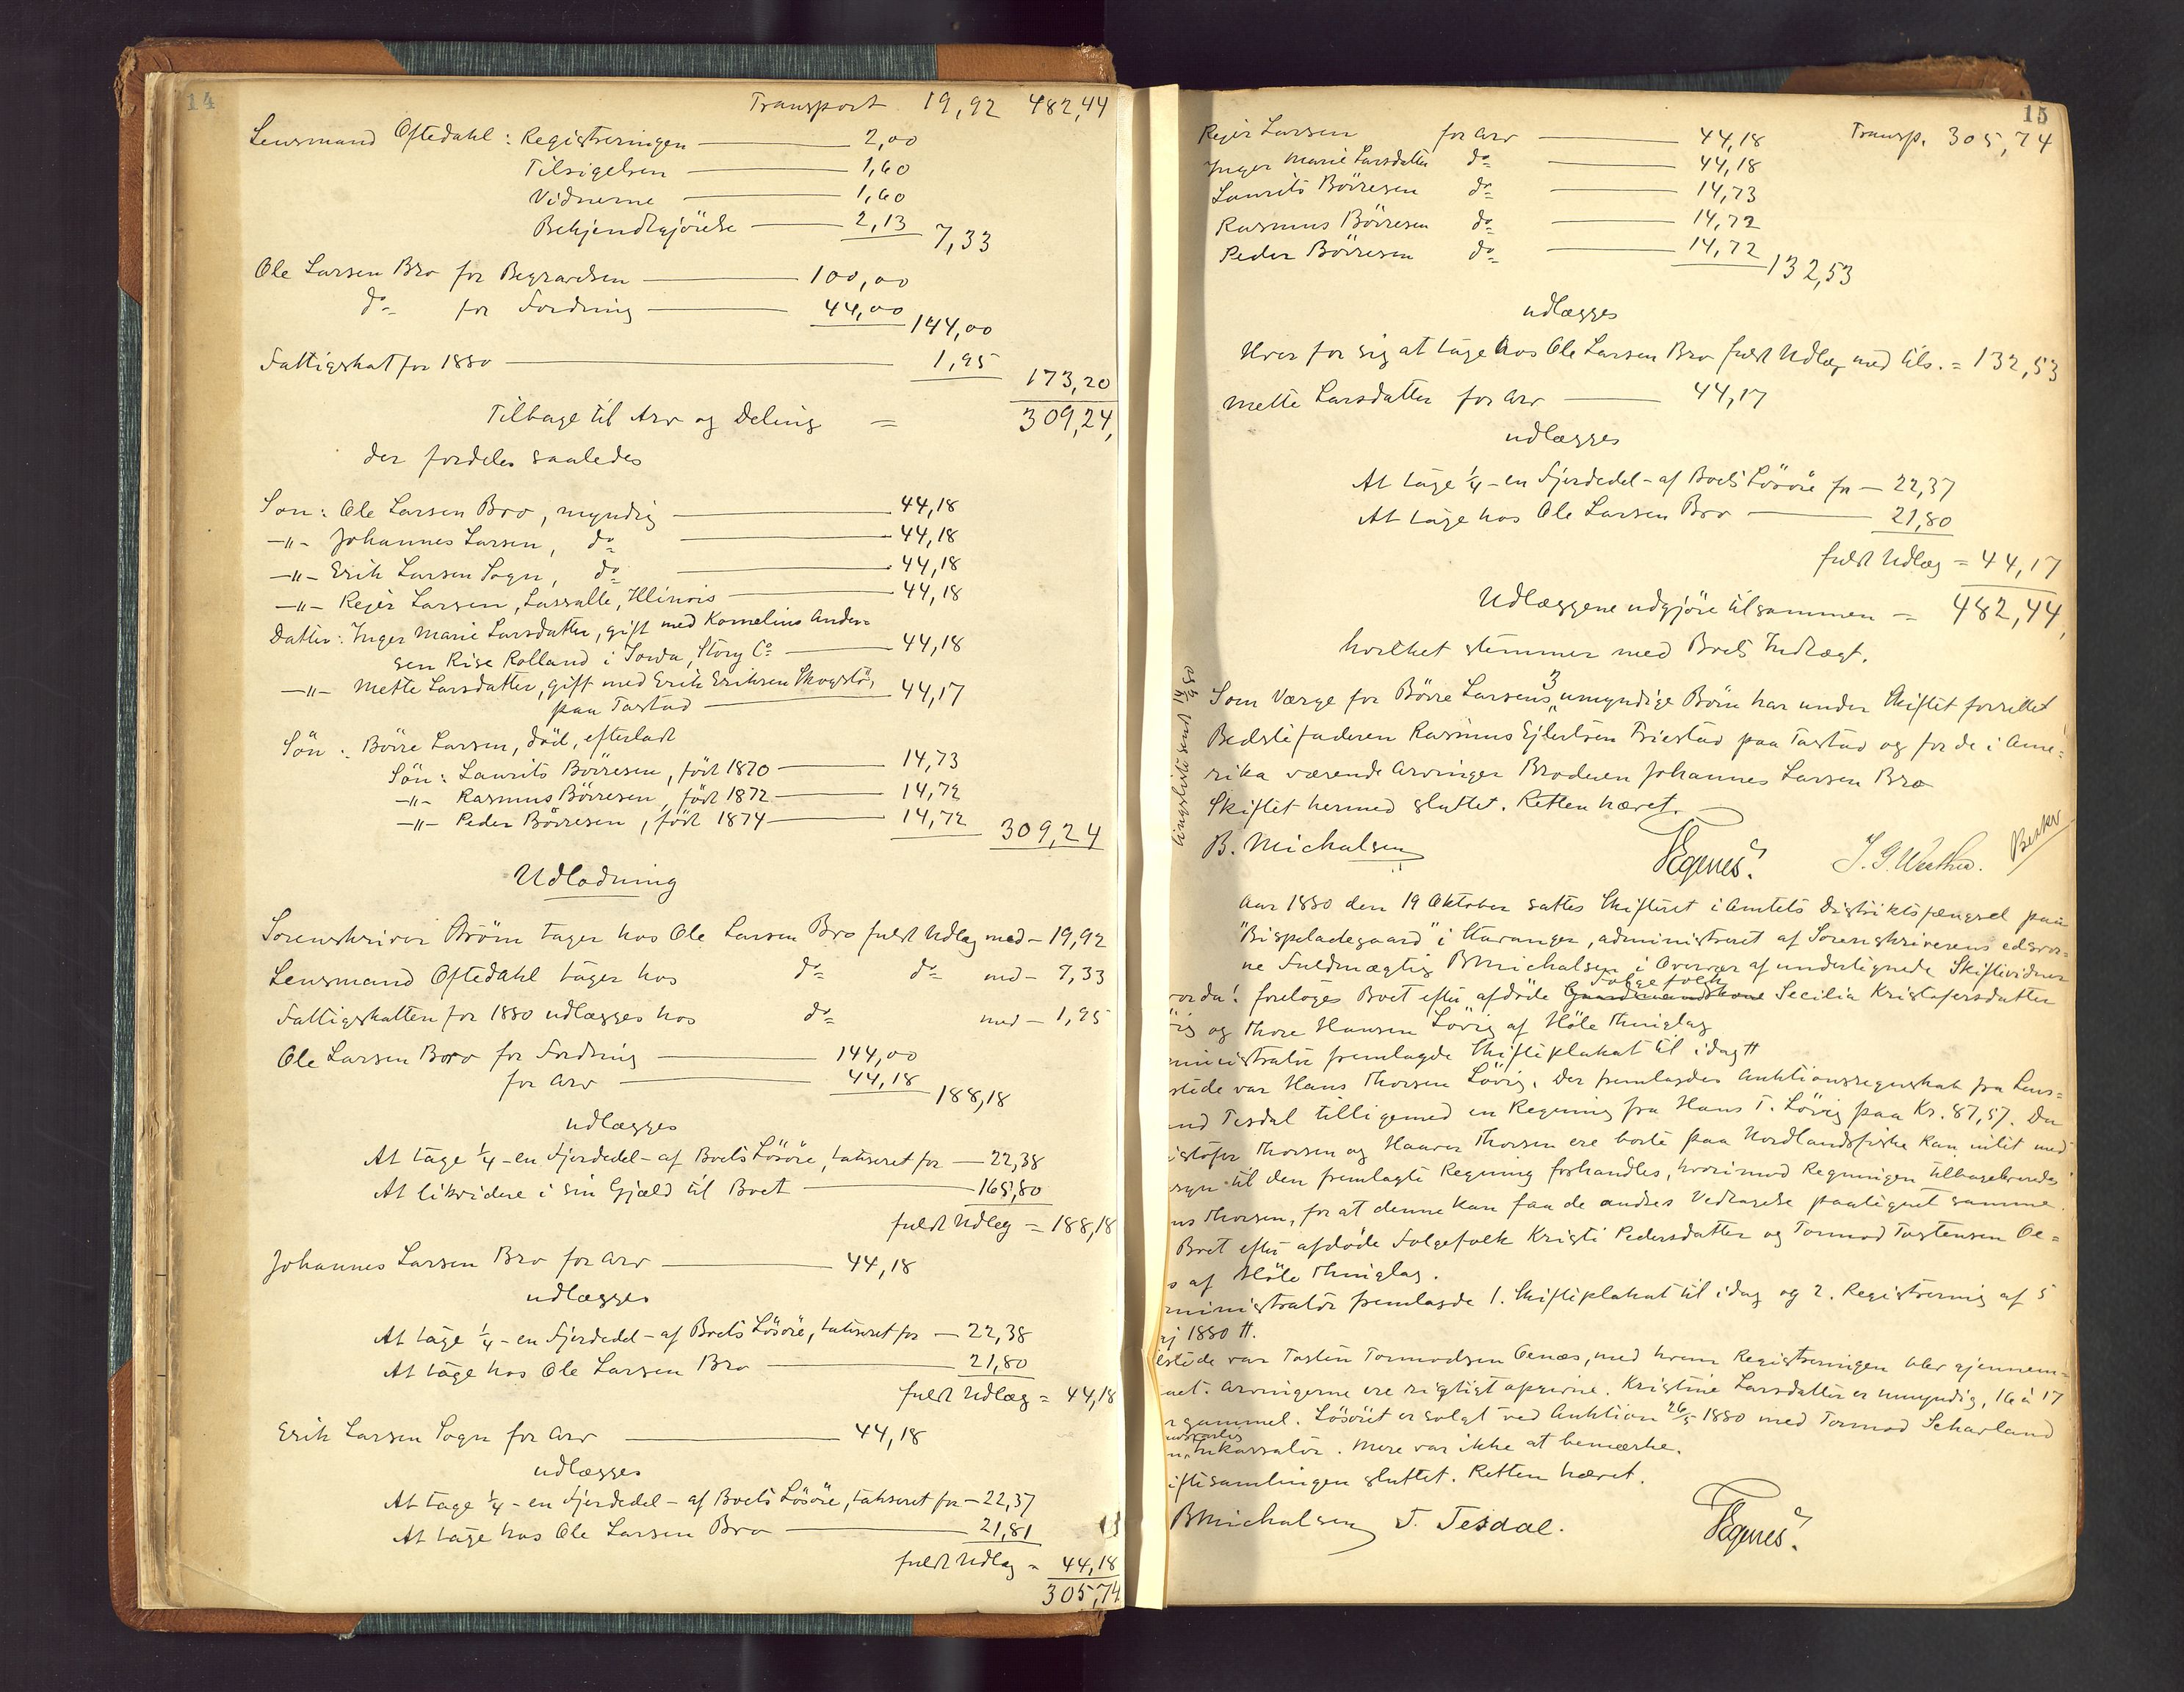 14
Transport 19,92 482,44
Lensmand Oftedahl: Registreringen — 2,00
Tilsigelsen — 1,60
Vidnerne — 1,60
Bekjendtgjörelse — 2,13 7,33
Ole Larsen Bro for Begravelsen — 100,00
do for Fordring — 44,00 144,00
Fattigskat for 1880 — 1,95
173,20
Tilbage til Arv og Deling = 309,24,
der fordeles saaledes
Søn: Ole Larsen Bro, myndig — 44,18
-"- Johannes Larsen, do — 44,18
-"- Erik Larsen Sogn, do — 44,18
-"- Rejer Larsen, Lassalle, Illinois — 44,18
Datter: Inger Marie Larsdatter, gift med Kornelius Ander=
sen Rise Rolland i Iowa, Story Co — 44,18
-"- Mette Larsdatter, gift med Erik Eriksen Skogstö,
paa Tastad — 44,17
Sön: Börre Larsen, död, efterladt
Sön: Laurits Börresen, födt 1870 — 14,73
-"- Rasmus Börresen, födt 1872 — 14,72
-"- Peder Börresen, födt 1874 — 14,72 309,24
Udlodning
Sorenskriver Ström tager hos Ole Larsen Bro fuldt Udlæg med - 19,92
Lensmand Oftedahl tager hos do do med - 7,33
Fattigskatten for 1880 udlægges hos do med - 1,95
Ole Larsen Bro for Fordring — 144,00
for Arv — 44,18 188,18
udlægges
At tage 1/4 - en Fjerdedel - af Boets Lösöre, takseret for — 22,38
At likvidere i sin Gjæld til Boet — 165,80
fuldt Udlæg = 188,18
Johannes Larsen Bro for Arv — 44,18
udlægges
At tage 1/4 - en Fjerdedel - af Boets Lösöre, takseret for — 22,38
At tage hos Ole Larsen Bro — 21,80
fuldt Udlæg = 44,18
Erik Larsen Sogn for Arv — 44,18
udlægges
At tage 1/4 - en Fjerdedel - af Boets Lösöre, takseret for — 22,37
At tage hos Ole Larsen Bro — 21,81
fuldt Udlæg = 44,18
305,74
15
Rejer Larsen for Arv — 44,18 Transp. 305,74
Inger Marie Larsdatter do — 44,18
Laurits Börresen do — 14,73
Rasmus Börresen do — 14,72
Peder Börresen do — 14,72 132,53
udlægges
Hver for sig at tage hos Ole Larsen Bro fuldt Udlæg med tils. = 132,53
Mette Larsdatter for Arv — 44,17
udlægges
At tage 1/4 - en Fjerdedel - af Boets Lösöre for — 22,37
At tage hos Ole Larsen Bro — 21,80
fuldt Udlæg = 44,17
Udlæggene udgjöre tilsammen = 482,44,
hvilket stemmer med Boets Indtægt.
Som Værge for Börre Larsens 3 umyndige Börn har under Skiftet forrettet
Bedstefaderen Rasmus Ejlertsen Friestad paa Tastad og for de i Ame=
rika værende Arvinger Broderen Johannes Larsen Bro
Skiftet hermed sluttet. Retten hævet.
B. Michalsen Egenes. Beskr
Aar 1880 den 19 Oktober sattes Skifteret i Amtets Distriktsfængsel paa
"Bispeladegaard" i Stavanger, administreret af Sorenskriverens edsvor=
ne Fuldmægtig B Michalsen i Overvær af undertegnede Skiftevidner
vorda! foretoges Boet efter afdöde Gaardmandskone Folgefolk Secilia Kristofersdatter
ig og Thore Hansen Lövig af Höle Thinglag
ministrator fremlagde Skifteplakat til idag #
stede var Hans Thorsen Lövig. Der fremlagdes Auktionsregnskab fra Lens=
and Tesdal tilligemed en Regning fra Hans T. Lövig paa Kr. 87,57. Da
istofer Thorsen og Haaver Thorsen ere borte paa Nordlandsfiske kan intet med
syn til den fremlagte Regning forhandles, hvorimod Regningen tilbageleveredes
ns Thorsen, for at denne kan faa de andres Vedtagelse paategnet samme.
Boet efter afdöde Folgefolk Kristi Pedersdatter og Tormod Tostensen Oe=
s af Höle Thinglag.
ministrator fremlagde 1. Skifteplakat til idag og 2. Registrering af 5
aj 1880 #.
lstede var Tosten Tormodsen Oenæs, med hvem Registreringen blev gjennem=
aet. Arvingerne ere rigtigt opgivne. Kristine Larsdatter er umyndig, 16 à 17
r gammel. Lösöret er solgt ved Auktion 26/5 1880 med Tormod Scharland
Inkassator. Mere var ikke at bemærke.
iftesamlingen sluttet. Retten hævet.
B Michalsen T. Tesdal. Egenes.